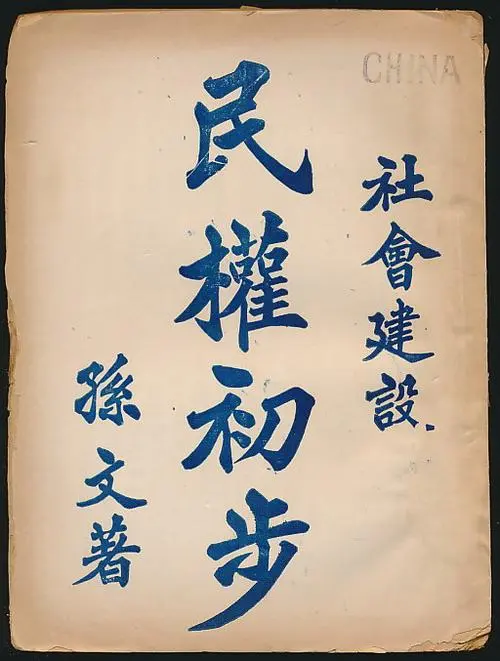 CHINA
社會建設.
民權初步
孫文著